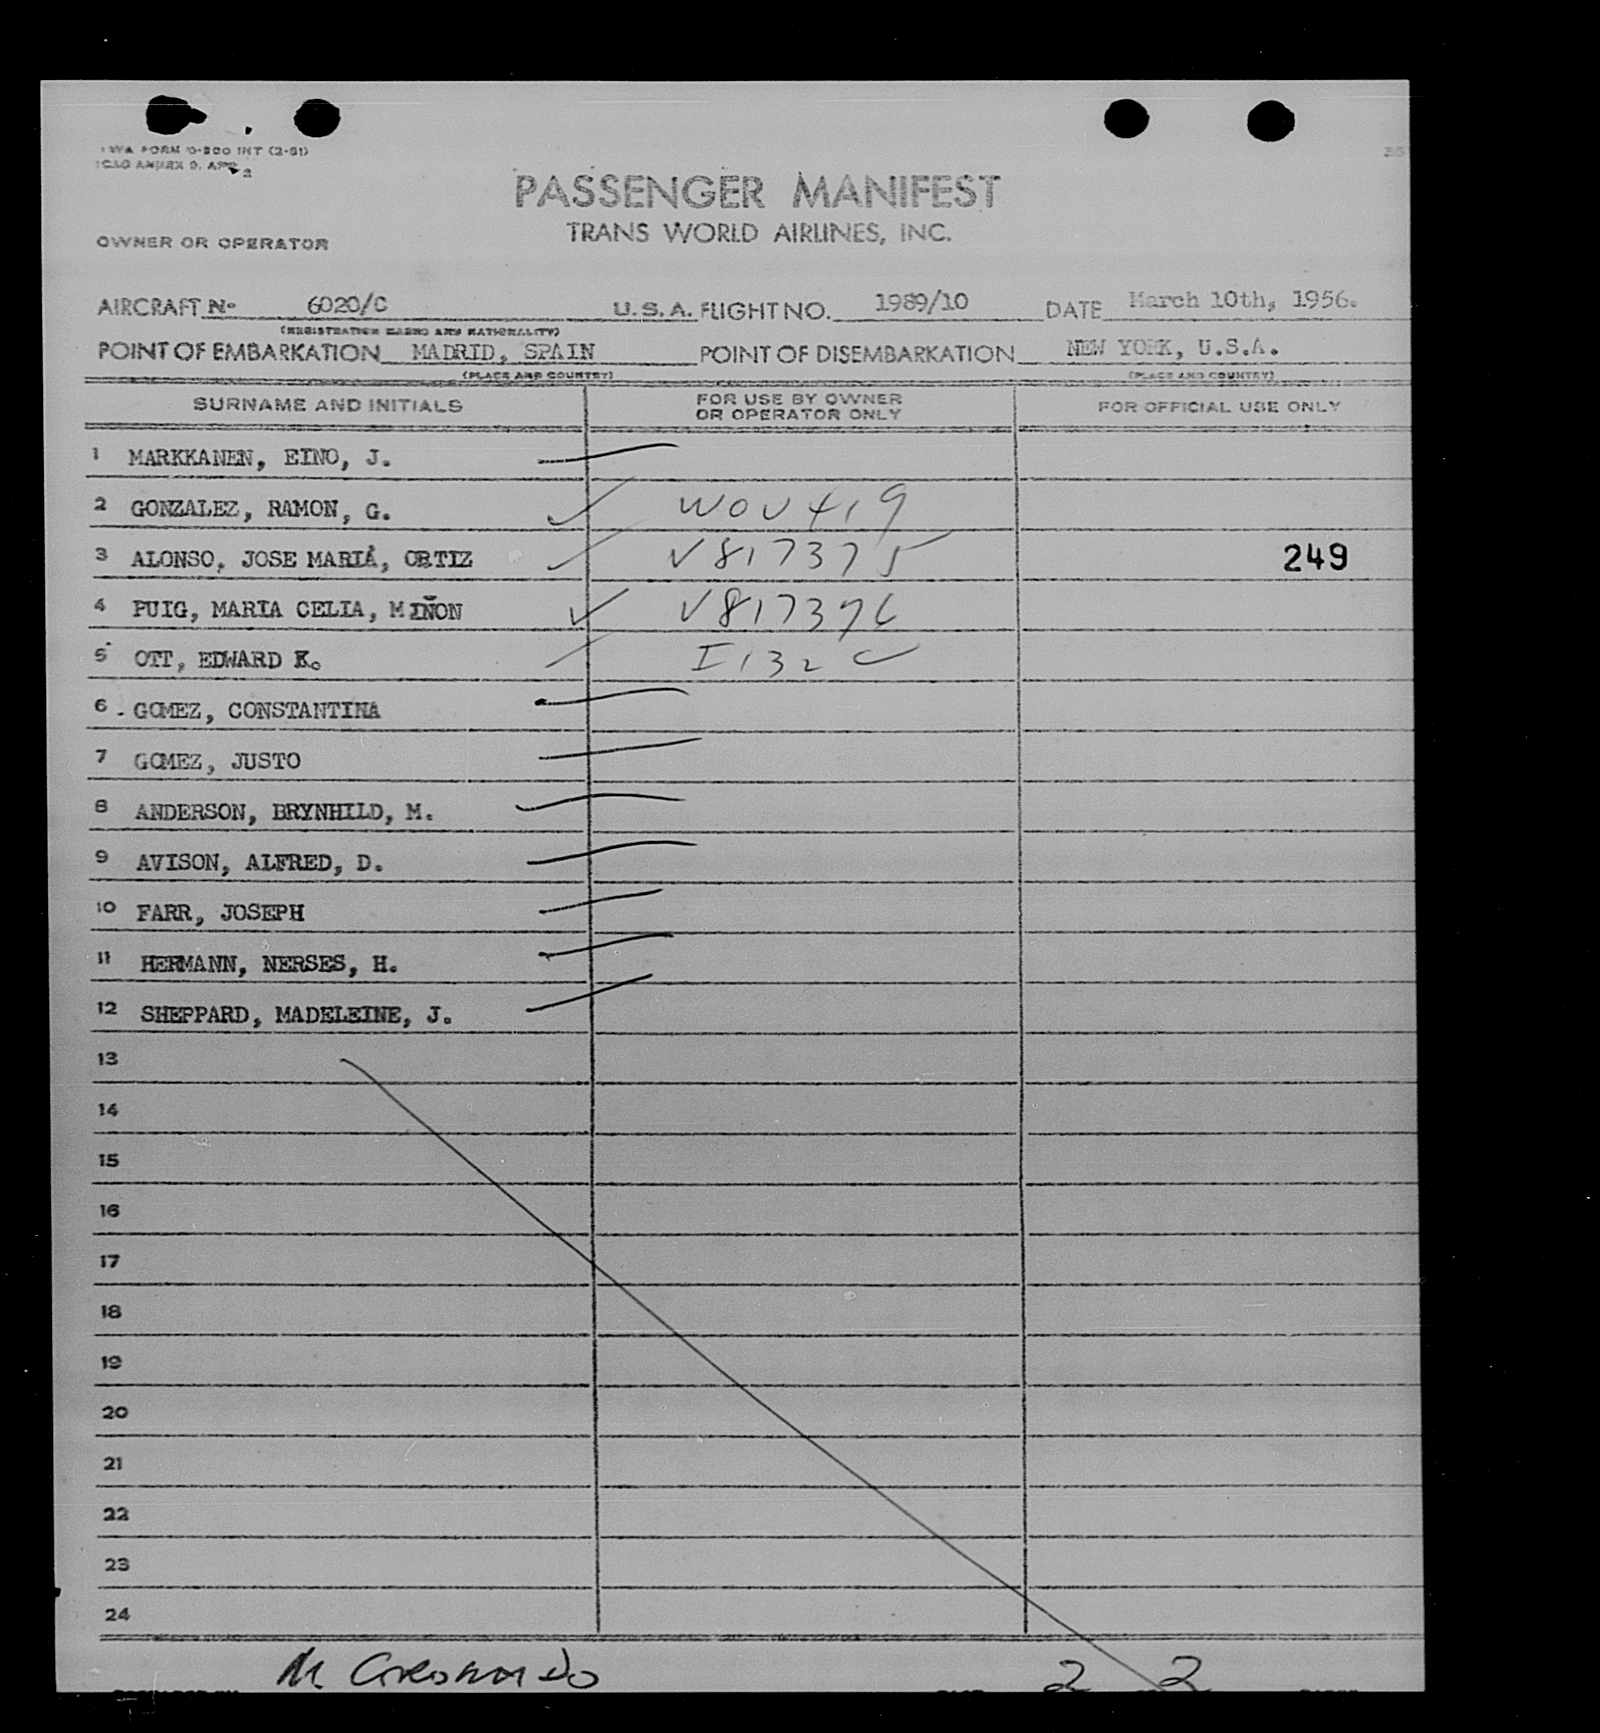 TWA FORM O-200 INT (2-51)
ICAO ANNEX 9, APP. 2
PASSENGER MANIFEST
TRANS WORLD AIRLINES, INC.
OWNER OR OPERATOR
AIRCRAFT No 6020/C U.S.A. FLIGHT NO. 1989/10 DATE March 10th, 1956.
(REGISTRATION MARKS AND NATIONALITY)
POINT OF EMBARKATION MADRID, SPAIN POINT OF DISEMBARKATION NEW YORK, U.S.A.
(PLACE AND COUNTRY) (PLACE AND COUNTRY)
SURNAME AND INITIALS FOR USE BY OWNER OR OPERATOR ONLY FOR OFFICIAL USE ONLY
1 MARKKANEN, EINO, J.
2 GONZALEZ, RAMON, G.
3 ALONSO, JOSE MARIÁ, ORTIZ V817375 249
4 PUIG, MARIA CELIA, MIÑON V817376
5 OTT, EDWARD K. I132
6 GOMEZ, CONSTANTINA
7 GOMEZ, JUSTO
8 ANDERSON, BRYNHILD, M.
9 AVISON, ALFRED, D.
10 FARR, JOSEPH
11 HERMANN, NERSES, H.
12 SHEPPARD, MADELEINE, J.
13
14
15
16
17
18
19
20
21
22
23
24
2 2